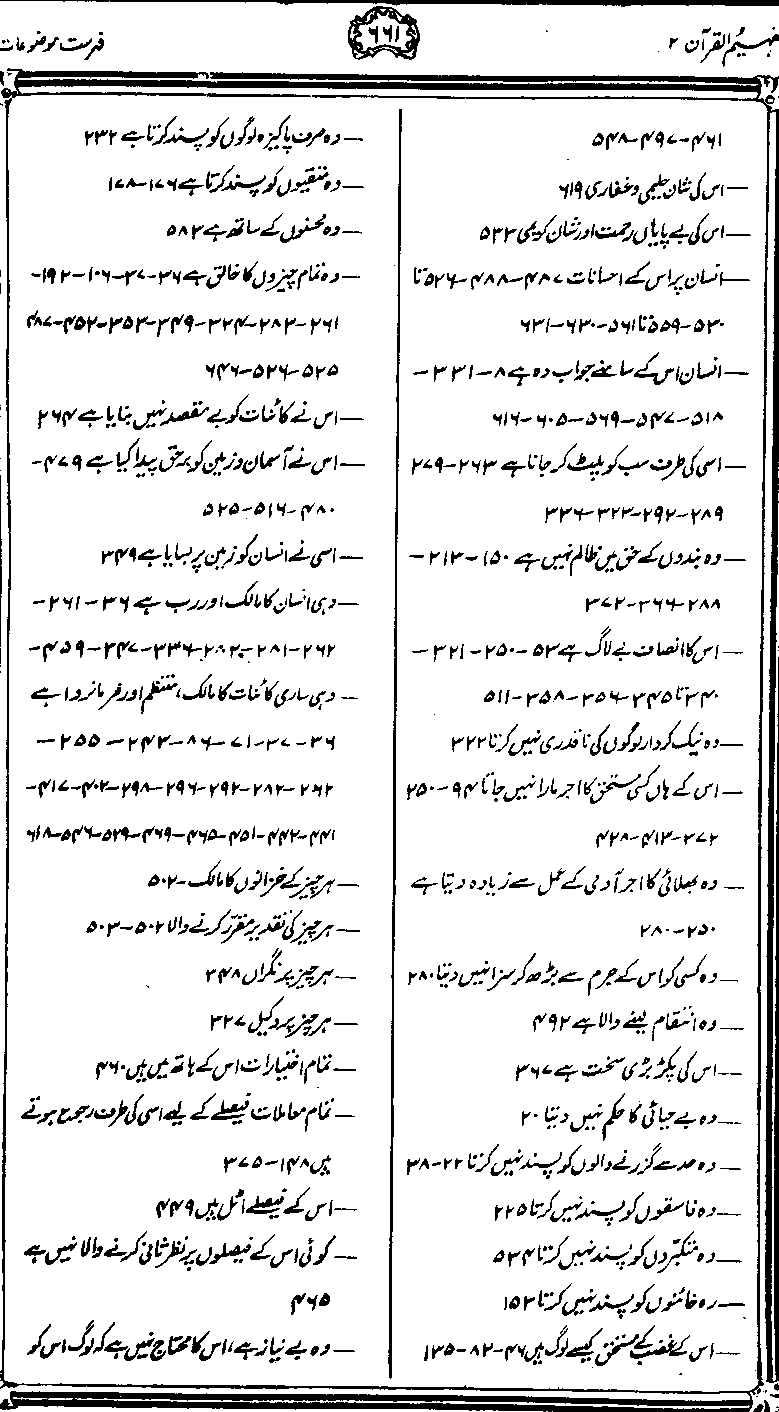 تفہیم القرآن ۲
۶۶۱
فہرست موضوعات
۴۶۱-۴۹۷-۵۴۸
— اس کی شان حلیمی و غفاری ۶۱۹
— اس کی بے پایاں رحمت اور شان کریمی ۵۳۳
— انسان پر اس کے احسانات ۴۸۷-۴۸۸-۵۲۶ تا
۵۳۰-۵۵۹ تا ۵۶۱-۶۳۰-۶۳۱
— انسان اس کے سامنے جواب دہ ہے ۸-۳۳۱-
۵۱۸-۵۴۷-۵۶۹-۶۰۵-۶۱۶
— اسی کی طرف سب کو پلیٹ کر جانا ہے ۲۶۳-۲۷۹
۲۸۹-۲۹۲-۳۲۳-۳۳۶
— وہ بندوں کے حق میں ظالم نہیں ہے ۱۵۰-۲۱۳-
۲۸۸-۳۶۶-۳۷۲
— اس کا انصاف بے لاگ ہے ۵۳-۲۵۰-۳۲۱-
۳۴۰ تا ۳۴۵-۳۵۶-۳۵۸-۵۱۱
— وہ نیک کردار لوگوں کی ناقدری نہیں کرتا ۳۲۲
— اس کے ہاں کسی مستحق کا اجر مارا نہیں جاتا ۹۴-۲۵۰
۳۷۲-۴۱۳-۴۲۸
— وہ بھلائی کا اجر آدمی کے عمل سے زیادہ دیتا ہے
۲۵۰-۲۸۰
— وہ کسی کو اس کے جرم سے بڑھ کر سزا نہیں دیتا ۲۸۰
— وہ انتقام لینے والا ہے ۴۹۲
— اس کی پکڑ بڑی سخت ہے ۳۶۷
— وہ بے حیائی کا حکم نہیں دیتا ۲۰
— وہ حد سے گزرنے والوں کو پسند نہیں کرتا ۲۲-۳۸
— وہ فاسقوں کو پسند نہیں کرتا ۲۲۵
— وہ متکبّروں کو پسند نہیں کرتا ۵۳۴
— وہ خائنوں کو پسند نہیں کرتا ۱۵۲
— اس کے غضب کے مستحق کیسے لوگ ہیں ۴۶-۸۲-۱۳۵
— وہ صرف پاکیزہ لوگوں کو پسند کرتا ہے ۲۳۲
— وہ متقیوں کو پسند کرتا ہے ۱۷۶-۱۷۸
— وہ محسنوں کے ساتھ ہے ۵۸۲
— وہ تمام چیزوں کا خالق ہے ۳۶-۳۷-۱۰۶-۱۹۲-
۲۶۱-۲۸۳-۳۲۴-۳۴۹-۳۵۳-۴۵۲-۴۸۷
۵۲۵-۵۲۶-۶۴۶
— اس نے کائنات کو بے مقصد نہیں بنایا ہے ۲۶۴
— اس نے آسمان و زمین کو برحق پیدا کیا ہے ۴۷۹-
۴۸۰-۵۱۶-۵۲۵
— اسی نے انسان کو زمین پر بسایا ہے ۳۴۹
— وہی انسان کا مالک اور رب ہے ۳۶-۲۶۱-
۲۶۲-۲۸۱-۲۸۲-۳۳۶-۳۴۷-۴۵۹-
— وہی ساری کائنات کا مالک، منتظم اور فرمانروا ہے
۳۶-۳۷-۷۱-۸۶-۲۴۳-۲۵۵-
۲۶۲-۲۸۲-۲۹۲-۲۹۶-۲۹۸-۴۰۲-۴۱۷-
۴۴۱-۴۴۲-۴۵۱-۴۶۵-۴۶۹-۵۲۹-۵۴۶-۶۱۸
— ہر چیز کے خزانوں کا مالک-۵۰۲
— ہر چیز کی تقدیر مقرّر کرنے والا ۵۰۲-۵۰۳
— ہر چیز پر نگراں ۳۴۸
— ہر چیز پر وکیل ۳۲۷
— تمام اختیارات اس کے ہاتھ میں ہیں ۴۶۰
— تمام معاملات فیصلے کے لیے اسی کی طرف رجوع ہوتے
ہیں ۱۴۸-۳۷۵
— اس کے فیصلے اٹل ہیں ۴۴۹
— کوئی اس کے فیصلوں پر نظر ثانی کرنے والا نہیں ہے
۴۶۵
— وہ بے نیاز ہے، اس کا محتاج نہیں ہے کہ لوگ اس کو